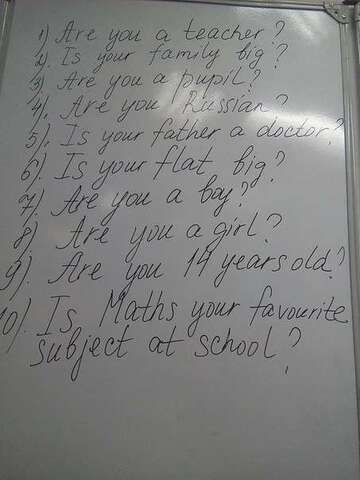 1) Are you a teacher?
2). Is your family big?
3) Are you a pupil?
4). Are you Russian?
5). Is your father a doctor?
6). Is your flat big?
7). Are you a boy?
8) Are you a girl?
9). Are you 14 years old?
10). Is Maths your favourite
subject at school?